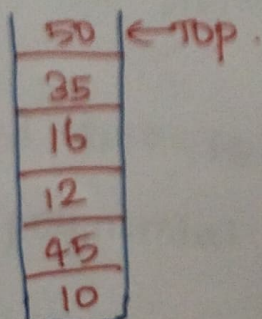 50 ←Top.
35
16
12
45
10